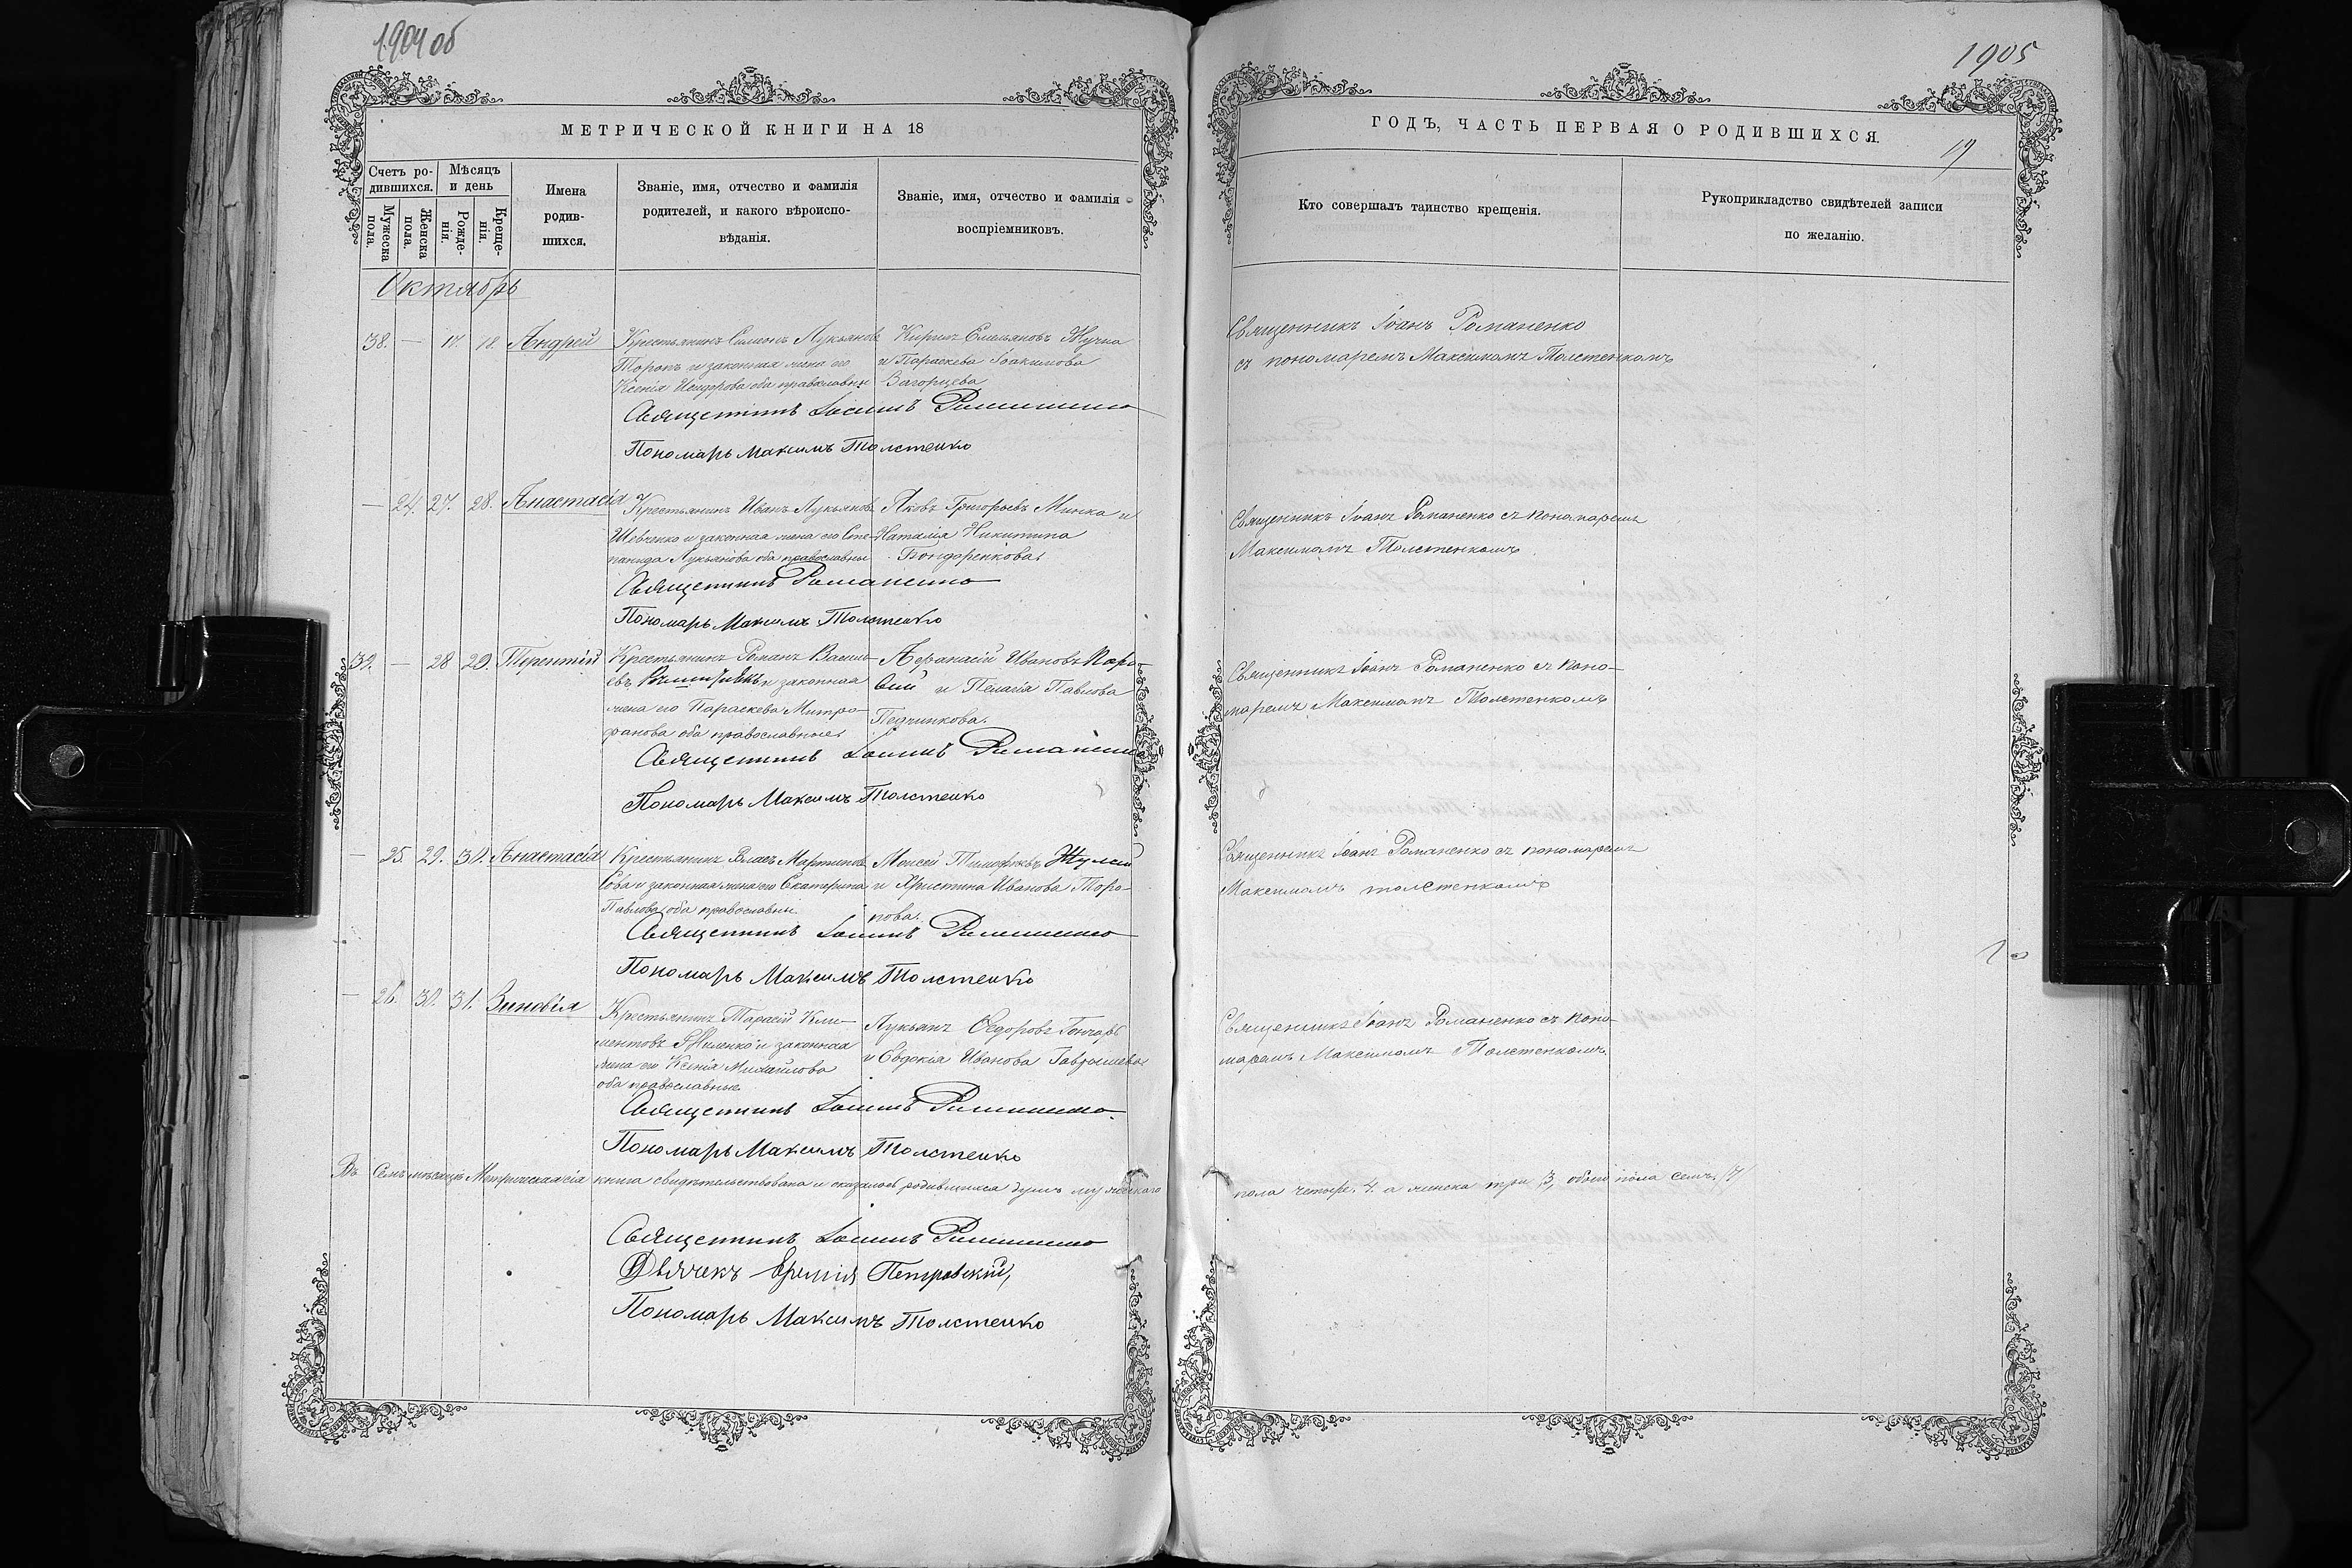 1904 об
МЕТРИЧЕСКОЙ КНИГИ НА 18
Счетъ ро-
дившихся.
Мужеска
пола.
Женска
пола.
Мѣсяцъ
и день
Рожде-
нія.
Креще-
нія.
Имена
родив-
шихся.
Званіе, имя, отчество и фамилія
родителей, и какого вѣроиспо-
вѣданія.
Званіе, имя, отчество и фамилія
воспріемниковъ.
Октябрь
38. — 17. 18. Андрей
Крестьянинъ Симеонъ Лукьяновъ
Торопъ и законная жена его
Ксенія Исидорова оба православны
Кирилъ Емельяновъ
и Параскева Іоакимова
Загорцева
Священникъ Іоаннъ Романенко
Пономарь Максимъ Толстенко
— 24. 27. 28. Анастасія
Крестьянинъ Иванъ Лукьяновъ
Шевченко и законная жена его Степа-
нида Лукьянова оба православны
Яковъ Григорьевъ Минка и
Наталія Никитина
Бондаренкова.
Священникъ Романенко
Пономарь Максимъ Толстенко
39. — 28 29. Терентій
Крестьянинъ Романъ Василь-
евъ и законная
жена его Параскева Митро-
фанова оба православные
Афанасій Ивановъ
и Пелагія Павлова
Педчинкова.
Священникъ Іоаннъ Романенко
Пономарь Максимъ Толстенко
— 25. 29. 30. Анастасія
Крестьянинъ Власъ Мартиновъ
Сова и законная жена его Екатерина
Павлова оба православны
Моисей Тимофѣевъ
и Христина Иванова Торо-
пова.
Священникъ Іоаннъ Романенко
Пономарь Максимъ Толстенко
— 26. 30. 31. Зиновія
Крестьянинъ Тарасій Кли-
ментовъ и законная
жена его Ксенія Михайлова
оба православные
Лукьянъ Федоровъ Гончаръ
и Евдокія Иванова
Священникъ Іоаннъ Романенко
Пономарь Максимъ Толстенко
Въ семъ мѣсяцѣ Метрическая сія книга свидѣтельствована и оказалось родившихся душъ мужескаго
Священникъ Іоаннъ Романенко
Дьячекъ Еремія Петровскій,
Пономарь Максимъ Толстенко
1905
ГОДЪ, ЧАСТЬ ПЕРВАЯ О РОДИВШИХСЯ.
19
Кто совершалъ таинство крещенія.
Рукоприкладство свидѣтелей записи
по желанію.
Священникъ Іоанъ Романенко
съ пономаремъ Максимомъ Толстенкомъ
Священникъ Іоанъ Романенко съ пономаремъ
Максимомъ Толстенкомъ
Священникъ Іоанъ Романенко съ поно-
маремъ Максимомъ Толстенкомъ
Священникъ Іоанъ Романенко съ пономаремъ
Максимомъ толстенкомъ
Священникъ Іоанъ Романенко съ поно-
маремъ Максимомъ Толстенкомъ.
пола четыре. 4. а женска три 3, обоего пола семь. 7